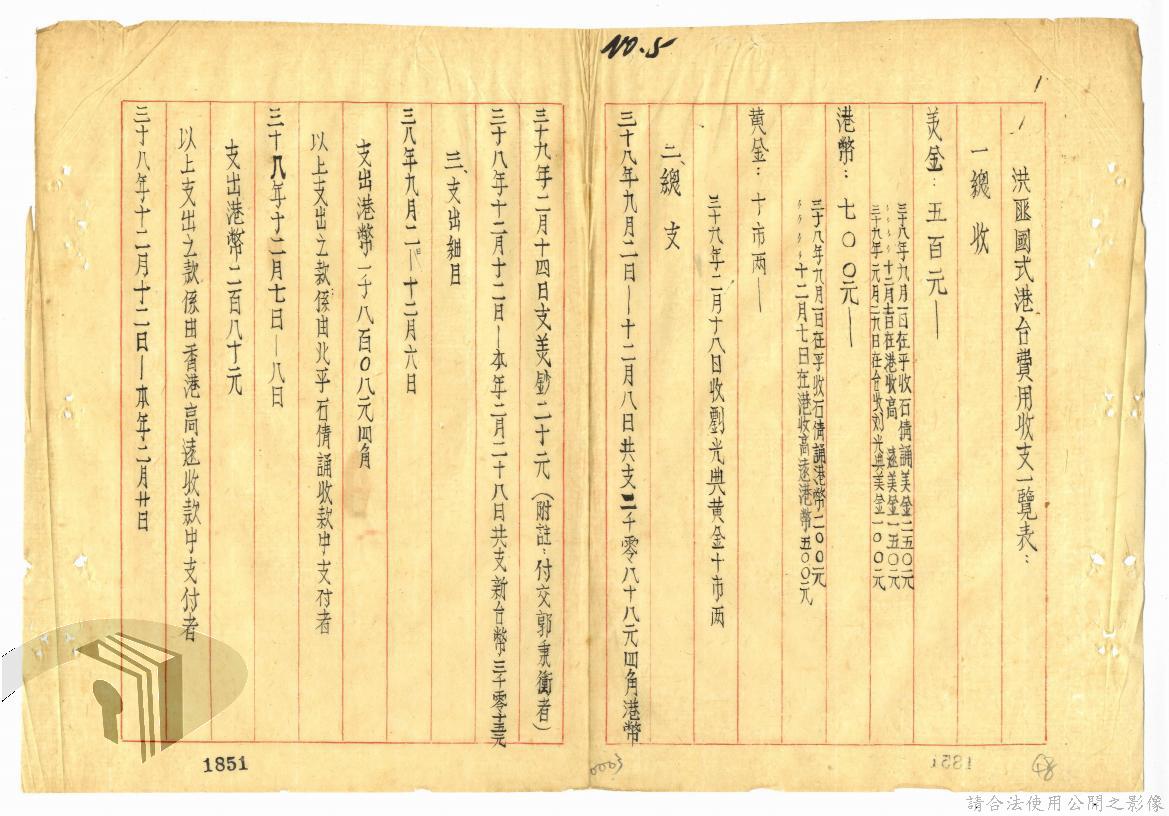 NO.5
1
洪匪國式港台費用收支一覽表：
一總收
美金：五百元—
三十八年九月一日在平收石倩誦美金二五〇元
〃〃〃十二月七日在港收高遠美金一五〇元
三十九年元月二九日在台收刘光典美金一〇〇元
港幣：七〇〇元—
三十八年九月一日在平收石倩誦港幣二〇〇元
〃〃〃十二月七日在港收高遠港幣五〇〇元
黄金：十市两—
三十九年二月十八日收劉光典黄金十市两
二、總支
三十八年九月二日—十二月八日共支二千零八十八元四角港幣
三十九年二月十四日支美鈔二十元（附註：付交郭秉衡者）
三十八年十二月十二日—本年二月二十八日共支新台幣三千零十五元
三、支出細目
三八年九月二—十二月六日
支出港幣一千八百〇八元四角
以上支出之款係由北平石倩誦收款中支付者
三十八年十二月七日—八日
支出港幣二百八十元
以上支出之款係由香港高遠收款中支付者
三十八年十二月十二日—本年二月廿日
1851
0003
1851
請合法使用公開之影像